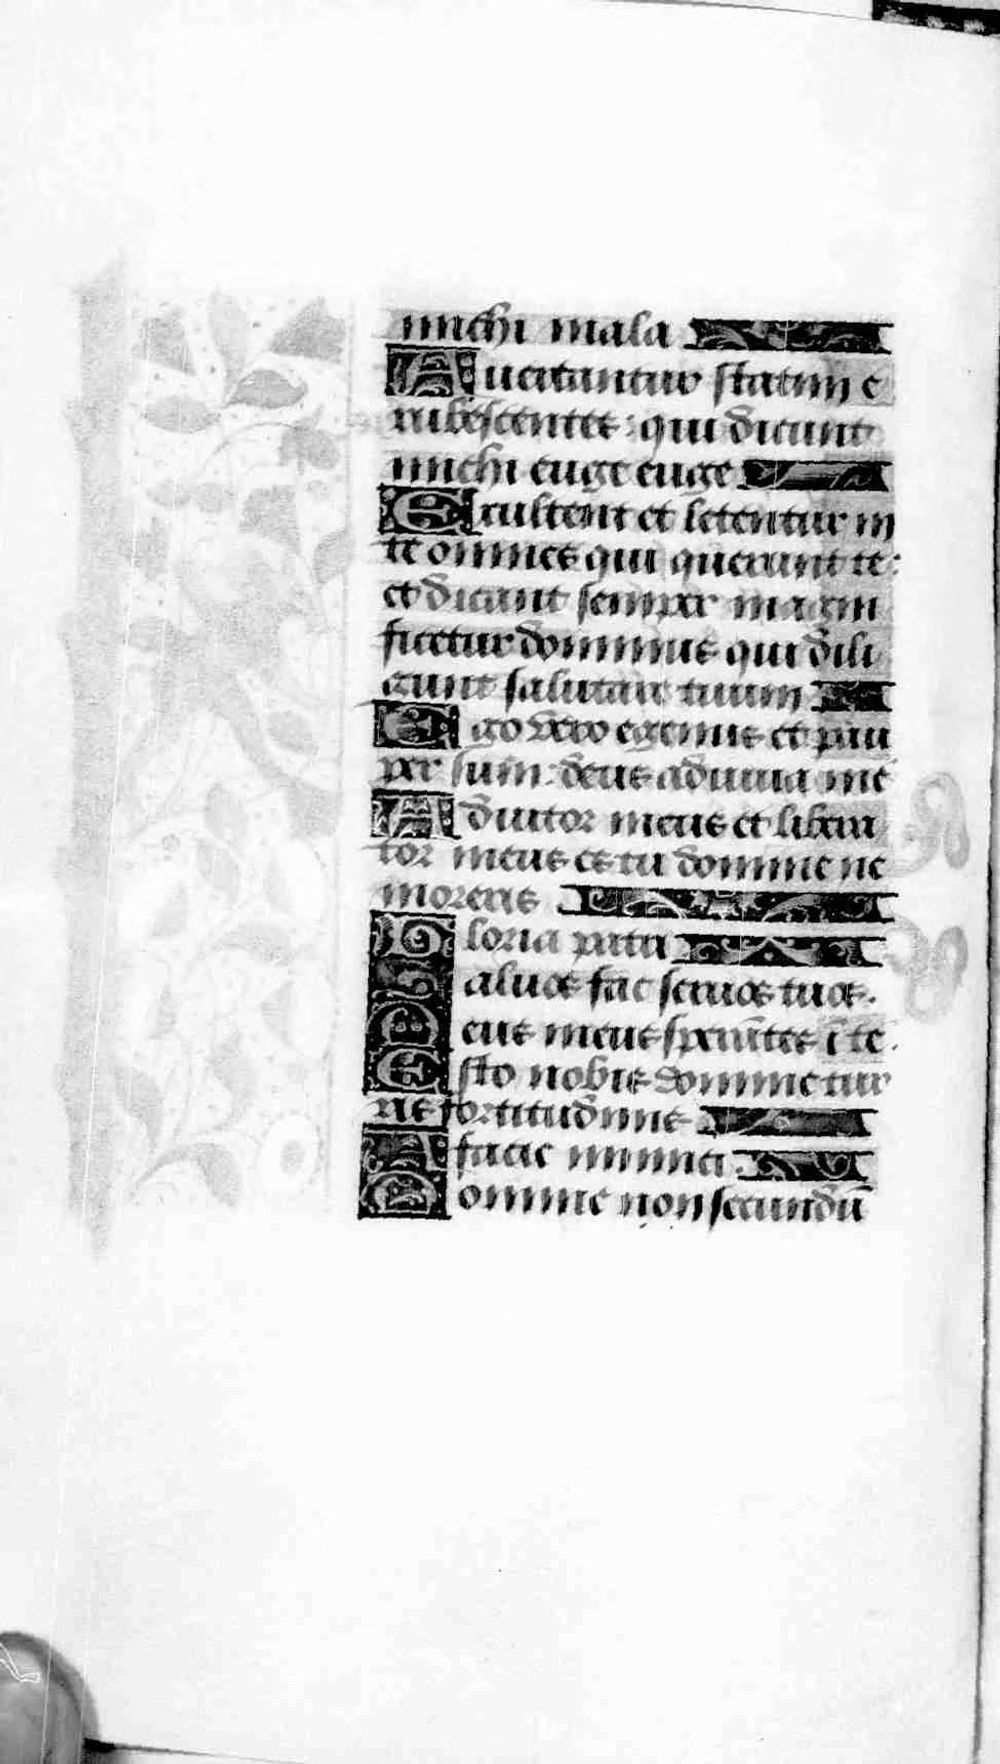 michi mala
Auertantur statim e
rubescentes: qui dicunt
michi euge euge
Exultent et letentur in
te omnes qui querunt te:
et dicant semper magni
ficetur dominus qui dili
gunt salutare tuum
Ego vero egenus et pau
per sum: deus adiuua me
Adiutor meus et libera
tor meus es tu domine ne
moreris
Gloria patri
Saluos fac seruos tuos.
Deus meus sperātes ī te.
Esto nobis domine tur
ris fortitudinis
A facie inimici
Domine non secundū